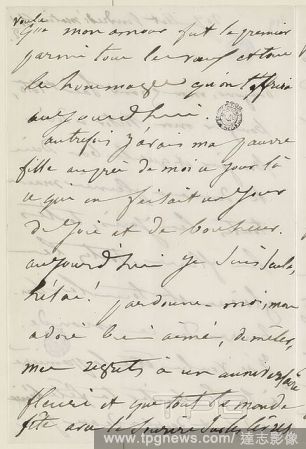 voulu
que mon amour fut le premier
parmi tous les vœux et tous
les hommages qu'on t'offrira
aujourd'hui.
autrefois j'avais ma pauvre
fille auprès de moi ce jour là
ce qui en faisait un jour
de joie et de bonheur.
aujourd'hui je suis seule,
hélas! pardonne-moi, mon
adoré bien aimé, de mêler
mes regrets à un anniversaire
fleuri et que tout le monde
fête avec le sourire sur les lèvres
www.tpgnews.com / 達志影像